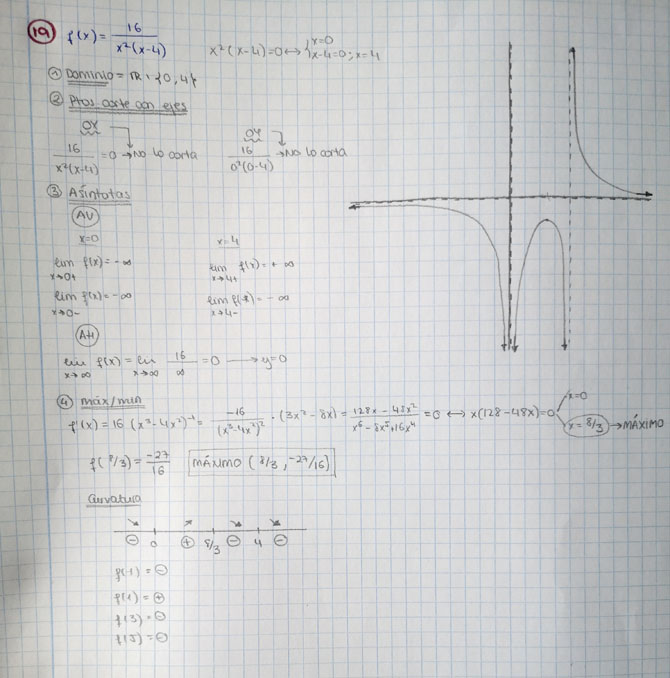 19 f(x) = 16 / x²(x-4)
x²(x-4)=0 ↔ { x=0 x-4=0; x=4
① Dominio = ℝ \ {0,4}
② Ptos corte con ejes
OX
16 / x²(x-4) = 0 → No lo corta
OY
16 / 0²(0-4) → No lo corta
③ Asíntotas
AV
x=0
lim x→0+ f(x) = -∞
lim x→0- f(x) = -∞
x=4
lim x→4+ f(x) = +∞
lim x→4- f(x) = -∞
AH
lim x→∞ f(x) = lim x→∞ 16/∞ = 0 → y=0
④ máx/mín
f'(x) = 16 (x³-4x²)⁻¹ = -16 / (x³-4x²)² · (3x²-8x) = 128x - 48x² / x⁶ - 8x⁵ + 16x⁴ = 0 ↔ x(128-48x)=0 x=0 x=8/3 → MÁXIMO
f(8/3) = -27/16 MÁXIMO (8/3, -27/16)
Curvatura
⊖ 0 ⊕ 8/3 ⊖ 4 ⊖
f(-1) = ⊖
f(1) = ⊕
f(3) = ⊖
f(5) = ⊖